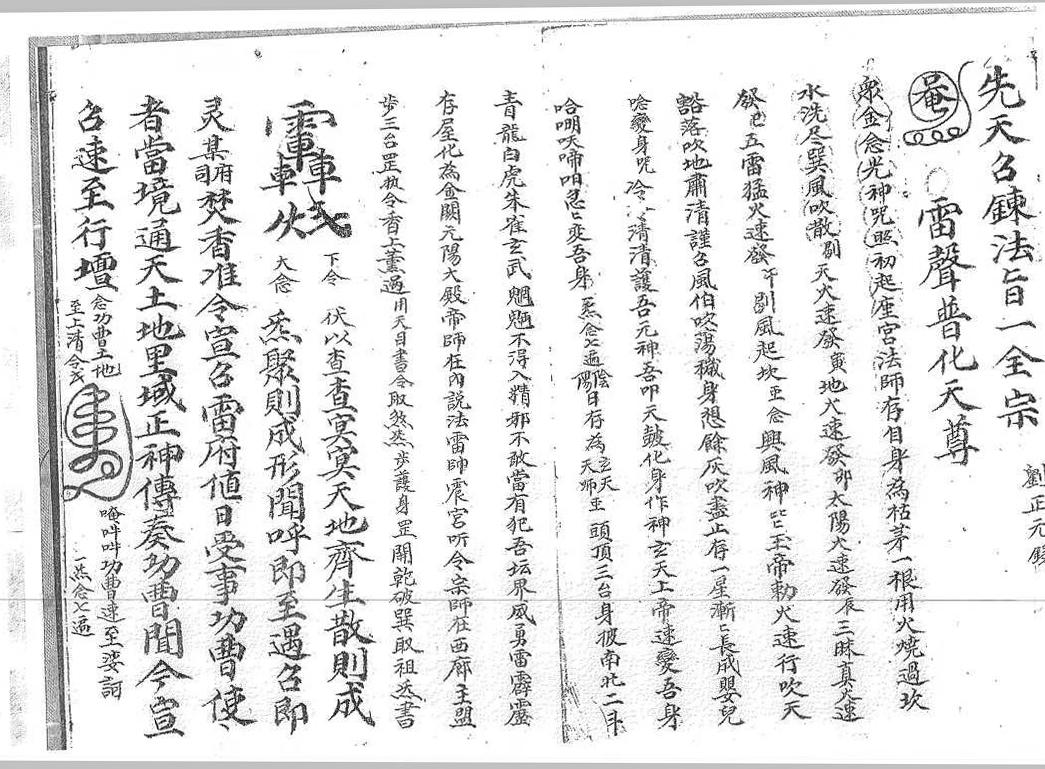 先天召鍊法旨一全宗
劉正元
雷聲普化天尊
金念光神咒照初起座宮法師存自身為枯茅一根用火燒過坎
水洗尽巽風吹散剔天火速發寅地火速發卯太陽火速發辰三昧真火速
發巳五雷猛火速發午剔風起坎至念興風神咒玉帝勅火速行吹天
豁落吹地肅清謹召風伯吹蕩穢身想餘灰吹盡止存一星漸々長成嬰兒
唸變身咒 冷々清清護吾元神吾叩天皷化身作神玄天上帝速變吾身
哈㘣吠啼咱忽々变吾身 炁念七遍 陰陽日存為玄天天師至 頭頂三台身披南北二斗
青龍白虎朱雀玄武魍魎不得入精邪不敢當有犯吾坛界威勇雷霹靂
存屋化為金闕元陽大殿帝師在內説法雷師震宮听令宗師在西廊主盟
步三台罡执令香上薰過用天目書令取煞炁步護身罡開乾破巽取祖炁書
下令 伏以查查冥冥天地齊生散則成
大念 炁聚則成形聞呼即至遇召即
灵某府司焚香准令宣召雷府值日受事功曹使
者當境通天土地里域正神傳奏功曹聞令宣
召速至行壇 念功曹土地至上清令
唵吽吽功曹速至娑訶 炁念七遍